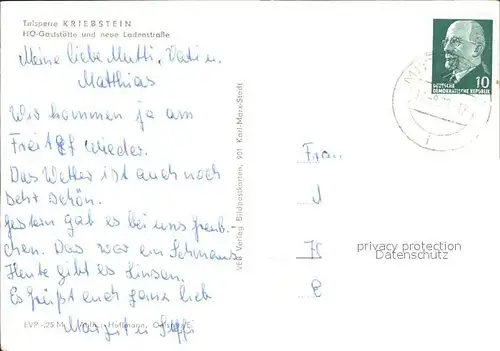 Talsperre KRIEBSTEIN
HO-Gaststätte und neue Ladenstraße
Meine liebe Mutti, Vati u.
Matthias
Wir kommen ja am
Freitag wieder.
Das Wetter ist auch noch
sehr schön.
Gestern gab es bei uns Greub-
chen. Das war ein Schmaus
Heute gibt es Linsen.
Es grüßt euch ganz lieb
Margit u. Steffi
EVP -,25 M Hoffmann,
VEB Verlag Bildpostkarten, 901 Karl-Marx-Stadt
10
DEUTSCHE
DEMOKRATISCHE REPUBLIK
Frau
J
H
E
privacy protection
Datenschutz